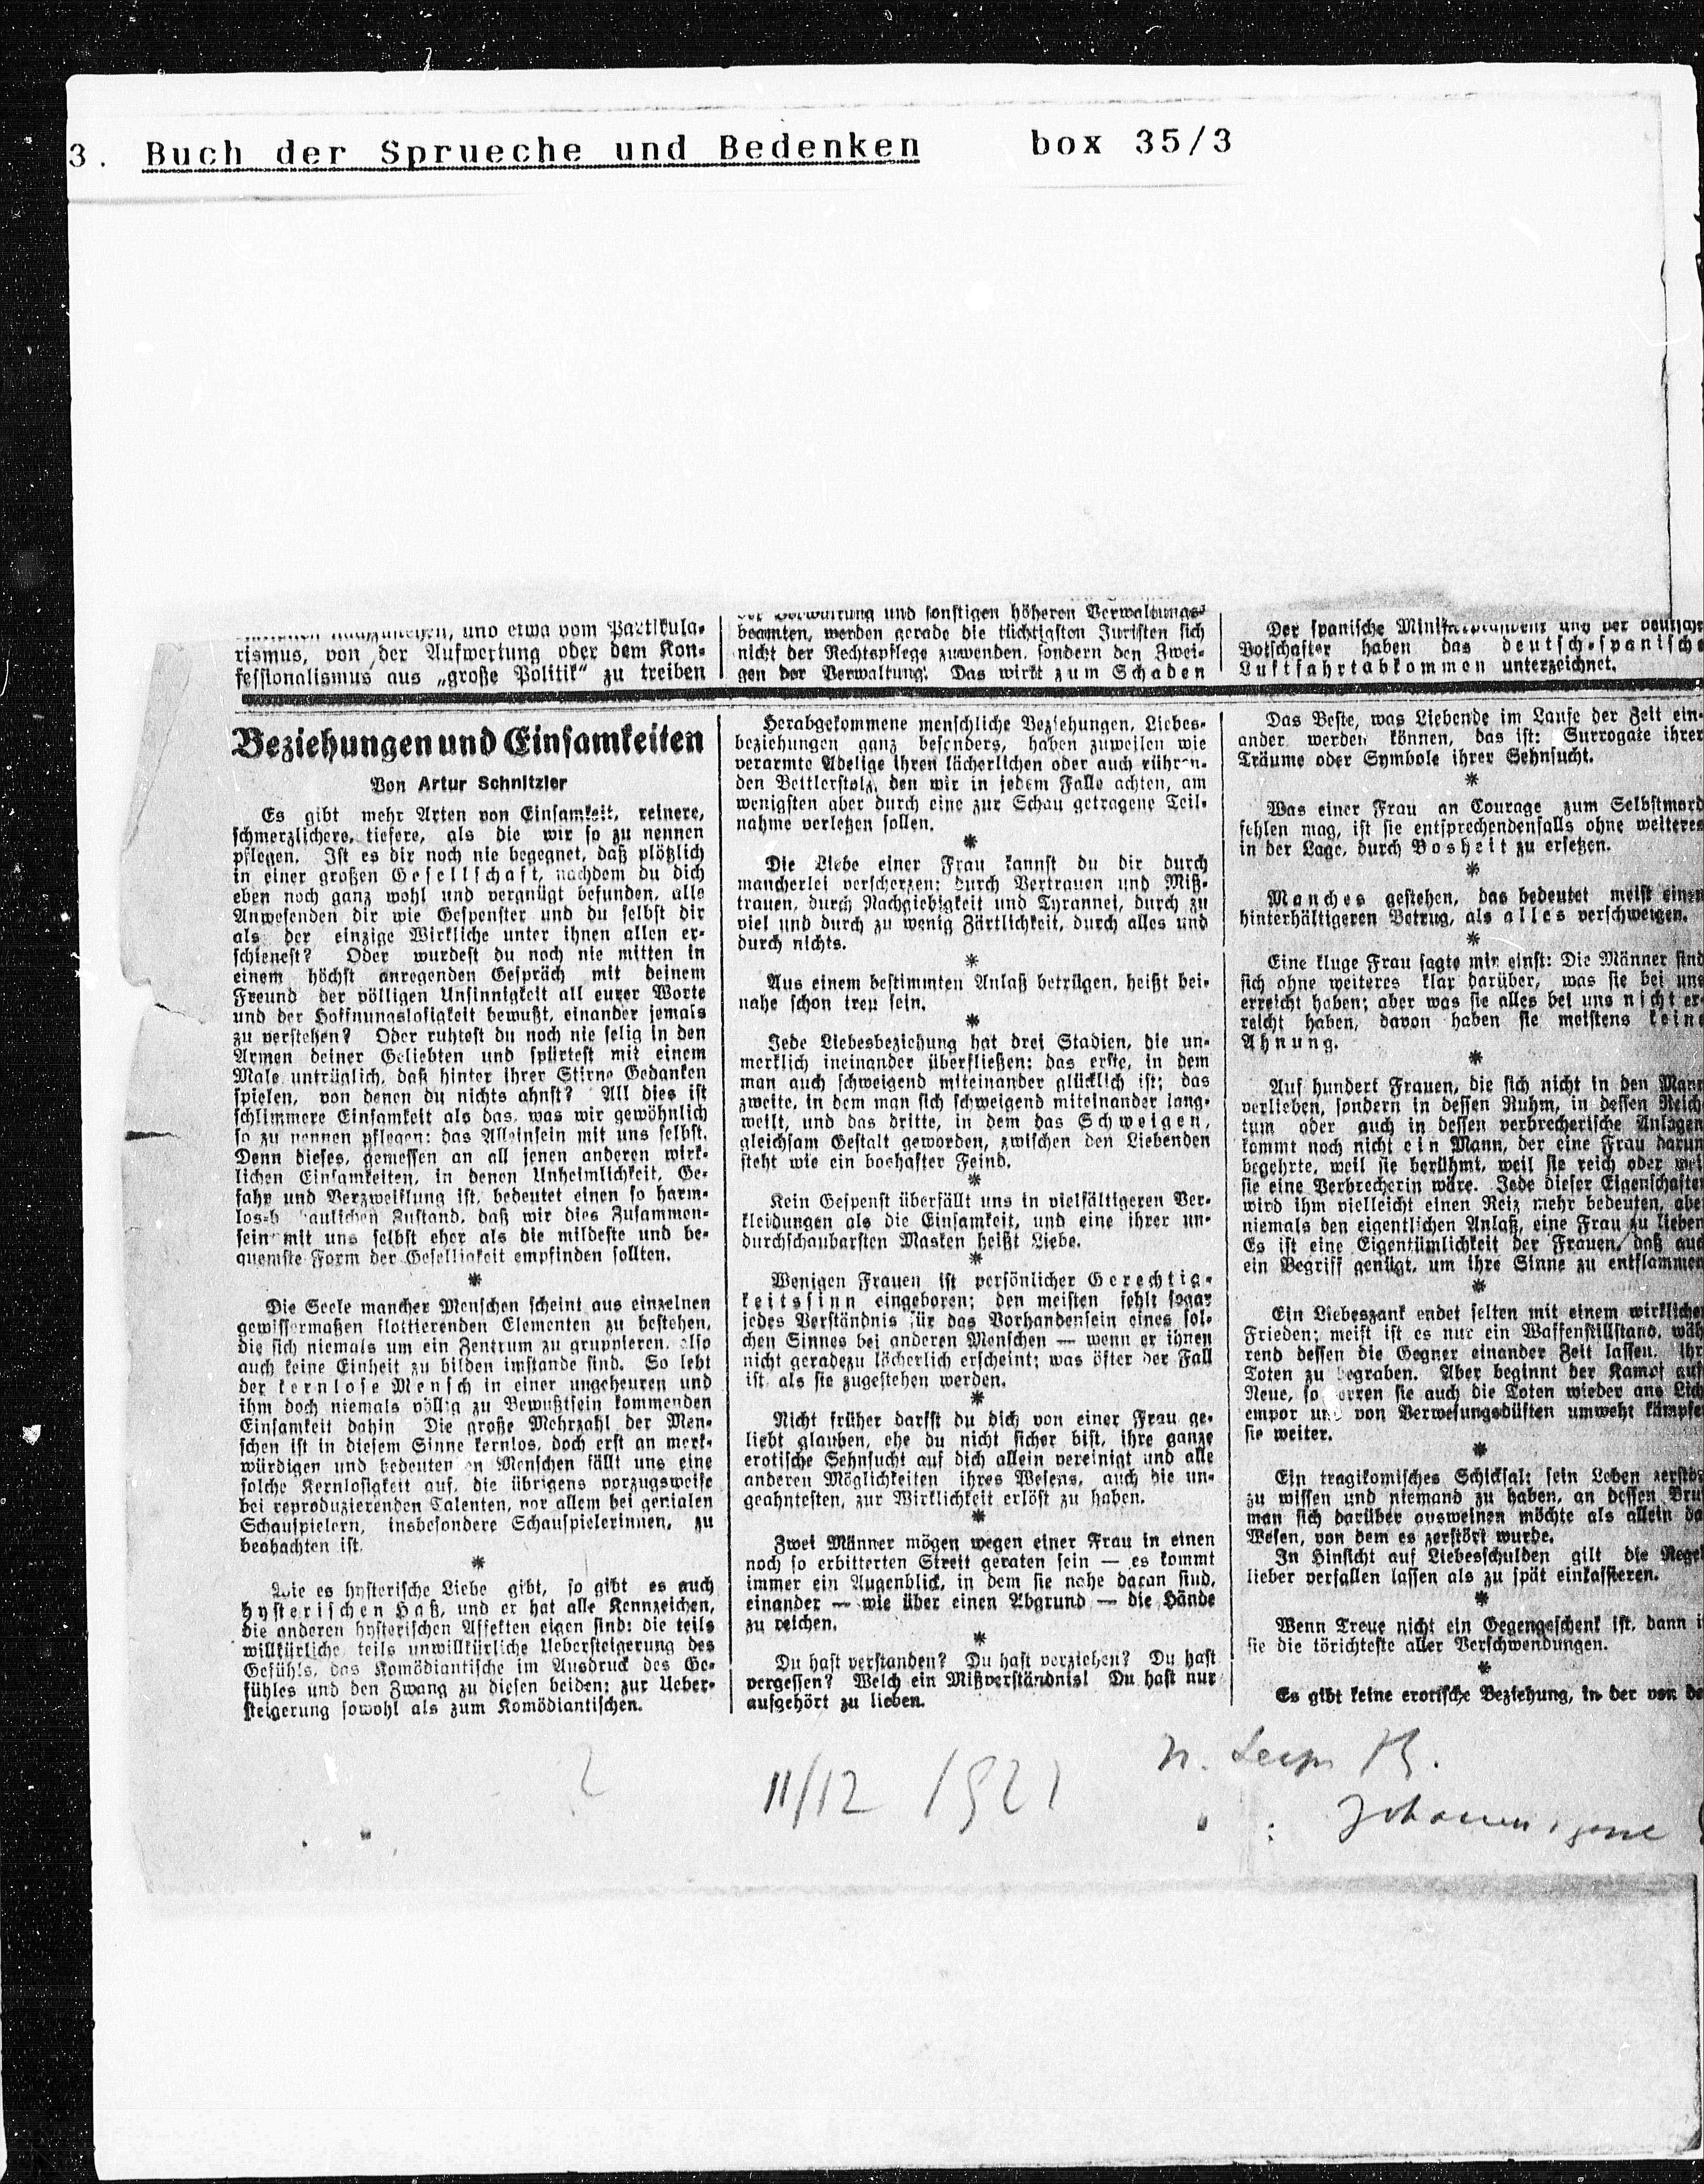 3. Buch der Sprueche und Bedenken box 35/3
und etwa vom Partikula-
rismus, von der Aufwertung oder dem Kon-
fessionalismus aus „große Politik“ zu treiben
und sonstigen höheren Verwaltungs-
beamten, werden gerade die tüchtigsten Juristen sich
nicht der Rechtspflege zuwenden, sondern den Zwei-
gen der Verwaltung. Das wirkt zum Schaden
Der spanische und der
Botschafter haben das deutsch-spanische
Luftfahrtabkommen unterzeichnet.
Beziehungen und Einsamkeiten
Von Artur Schnitzler
Es gibt mehr Arten von Einsamkeit, reinere,
schmerzlichere, tiefere, als die wir so zu nennen
pflegen. Ist es dir noch nie begegnet, daß plötzlich
in einer großen Gesellschaft, nachdem du dich
eben noch ganz wohl und vergnügt befunden, alle
Anwesenden dir wie Gespenster und du selbst dir
als der einzige Wirkliche unter ihnen allen er-
schienest? Oder wurdest du noch nie mitten in
einem höchst anregenden Gespräch mit deinem
Freund der völligen Unsinnigkeit all eurer Worte
und der Hoffnungslosigkeit bewußt, einander jemals
zu verstehen? Oder ruhtest du noch nie selig in den
Armen deiner Geliebten und spürtest mit einem
Male untrüglich, daß hinter ihrer Stirne Gedanken
spielen, von denen du nichts ahnst? All dies ist
schlimmere Einsamkeit als das, was wir gewöhnlich
so zu nennen pflegen: das Alleinsein mit uns selbst.
Denn dieses, gemessen an all jenen anderen wirk-
lichen Einsamkeiten, in denen Unheimlichkeit, Ge-
fahr und Verzweiflung ist, bedeutet einen so harm-
los-b aulichen Zustand, daß wir dies Zusammen-
sein mit uns selbst eher als die mildeste und be-
quemste Form der Geselligkeit empfinden sollten.
*
Die Seele mancher Menschen scheint aus einzelnen
gewissermaßen flottierenden Elementen zu bestehen,
die sich niemals um ein Zentrum zu gruppieren, also
auch keine Einheit zu bilden imstande sind. So lebt
der kernlose Mensch in einer ungeheuren und
ihm doch niemals völlig zu Bewußtsein kommenden
Einsamkeit dahin Die große Mehrzahl der Men-
schen ist in diesem Sinne kernlos, doch erst an merk-
würdigen und bedeuten en Menschen fällt uns eine
solche Kernlosigkeit auf, die übrigens vorzugsweise
bei reproduzierenden Talenten, vor allem bei genialen
Schauspielern, insbesondere Schauspielerinnen, zu
beobachten ist.
*
Wie es hysterische Liebe gibt, so gibt es auch
hysterischen Haß, und er hat alle Kennzeichen,
die anderen hysterischen Affekten eigen sind: die teils
willkürliche, teils unwillkürliche Uebersteigerung des
Gefühls, das Komödiantische im Ausdruck des Ge-
fühles und den Zwang zu diesen beiden: zur Ueber-
steigerung sowohl als zum Komödiantischen.
Herabgekommene menschliche Beziehungen, Liebes-
beziehungen ganz besonders, haben zuweilen wie
verarmte Adelige ihren lächerlichen oder auch rühren-
den Bettlerstolz, den wir in jedem Falle achten, am
wenigsten aber durch eine zur Schau getragene Teil-
nahme verletzen sollen.
*
Die Liebe einer Frau kannst du dir durch
mancherlei verscherzen: durch Vertrauen und Miß-
trauen, durch Nachgiebigkeit und Tyrannei, durch zu
viel und durch zu wenig Zärtlichkeit, durch alles und
durch nichts.
*
Aus einem bestimmten Anlaß betrügen, heißt bei-
nahe schon treu sein.
*
Jede Liebesbeziehung hat drei Stadien, die un-
merklich ineinander überfließen: das erste, in dem
man auch schweigend miteinander glücklich ist; das
zweite, in dem man sich schweigend miteinander lang-
weilt, und das dritte, in dem das Schweigen,
gleichsam Gestalt geworden, zwischen den Liebenden
steht wie ein boshafter Feind.
*
Kein Gespenst überfällt uns in vielfältigeren Ver-
kleidungen als die Einsamkeit, und eine ihrer un-
durchschaubarsten Masken heißt Liebe.
*
Wenigen Frauen ist persönlicher Gerechtig-
keitssinn eingeboren; den meisten fehlt sogar
jedes Verständnis für das Vorhandensein eines sol-
chen Sinnes bei anderen Menschen — wenn er ihnen
nicht geradezu lächerlich erscheint; was öfter der Fall
ist, als sie zugestehen werden.
*
Nicht früher darfst du dich von einer Frau ge-
liebt glauben, ehe du nicht sicher bist, ihre ganze
erotische Sehnsucht auf dich allein vereinigt und alle
anderen Möglichkeiten ihres Wesens, auch die un-
geahntesten, zur Wirklichkeit erlöst zu haben.
*
Zwei Männer mögen wegen einer Frau in einen
noch so erbitterten Streit geraten sein — es kommt
immer ein Augenblick, in dem sie nahe daran sind,
einander — wie über einen Abgrund — die Hände
zu reichen.
*
Du hast verstanden? Du hast verziehen? Du hast
vergessen? Welch ein Mißverständnis! Du hast nur
aufgehört zu lieben.
Das Beste, was Liebende im Laufe der Zeit ein-
ander werden können, das ist: Surrogate ihrer
Träume oder Symbole ihrer Sehnsucht.
*
Was einer Frau an Courage zum Selbstmord
fehlen mag, ist sie entsprechendenfalls ohne weiteres
in der Lage, durch Bosheit zu ersetzen.
*
Manches gestehen, das bedeutet meist einen
hinterhältigeren Betrug, als alles verschweigen.
*
Eine kluge Frau sagte mir einst: Die Männer sind
sich ohne weiteres klar darüber, was sie bei uns
erreicht haben; aber was sie alles bei uns nicht er-
reicht haben, davon haben sie meistens keine
Ahnung.
*
Auf hundert Frauen, die sich nicht in den Mann
verlieben, sondern in dessen Ruhm, in dessen Reich-
tum oder auch in dessen verbrecherische Anlagen
kommt noch nicht ein Mann, der eine Frau darum
begehrte, weil sie berühmt, weil sie reich oder weil
sie eine Verbrecherin wäre. Jede dieser Eigenschaften
wird ihm vielleicht einen Reiz mehr bedeuten, aber
niemals den eigentlichen Anlaß, eine Frau zu lieben
Es ist eine Eigentümlichkeit der Frauen, daß auch
ein Begriff genügt, um ihre Sinne zu entflammen
*
Ein Liebeszank endet selten mit einem wirklichen
Frieden; meist ist es nur ein Waffenstillstand, wäh
rend dessen die Gegner einander Zeit lassen, ihre
Toten zu begraben. Aber beginnt der Kampf aufs
Neue, so erren sie auch die Toten wieder ans Lich
empor und von Verwesungsdüften umweht kämpfen
sie weiter.
*
Ein tragikomisches Schicksal: sein Leben zerstör
zu wissen und niemand zu haben, an dessen Brus
man sich darüber ausweinen möchte als allein da
Wesen, von dem es zerstört wurde.
In Hinsicht auf Liebesschulden gilt die Regel
lieber verfallen lassen als zu spät einkassieren.
*
Wenn Treue nicht ein Gegengeschenk ist, dann i
sie die törichteste aller Verschwendungen.
*
Es gibt keine erotische Beziehung, in der von de
2
11/12 1927